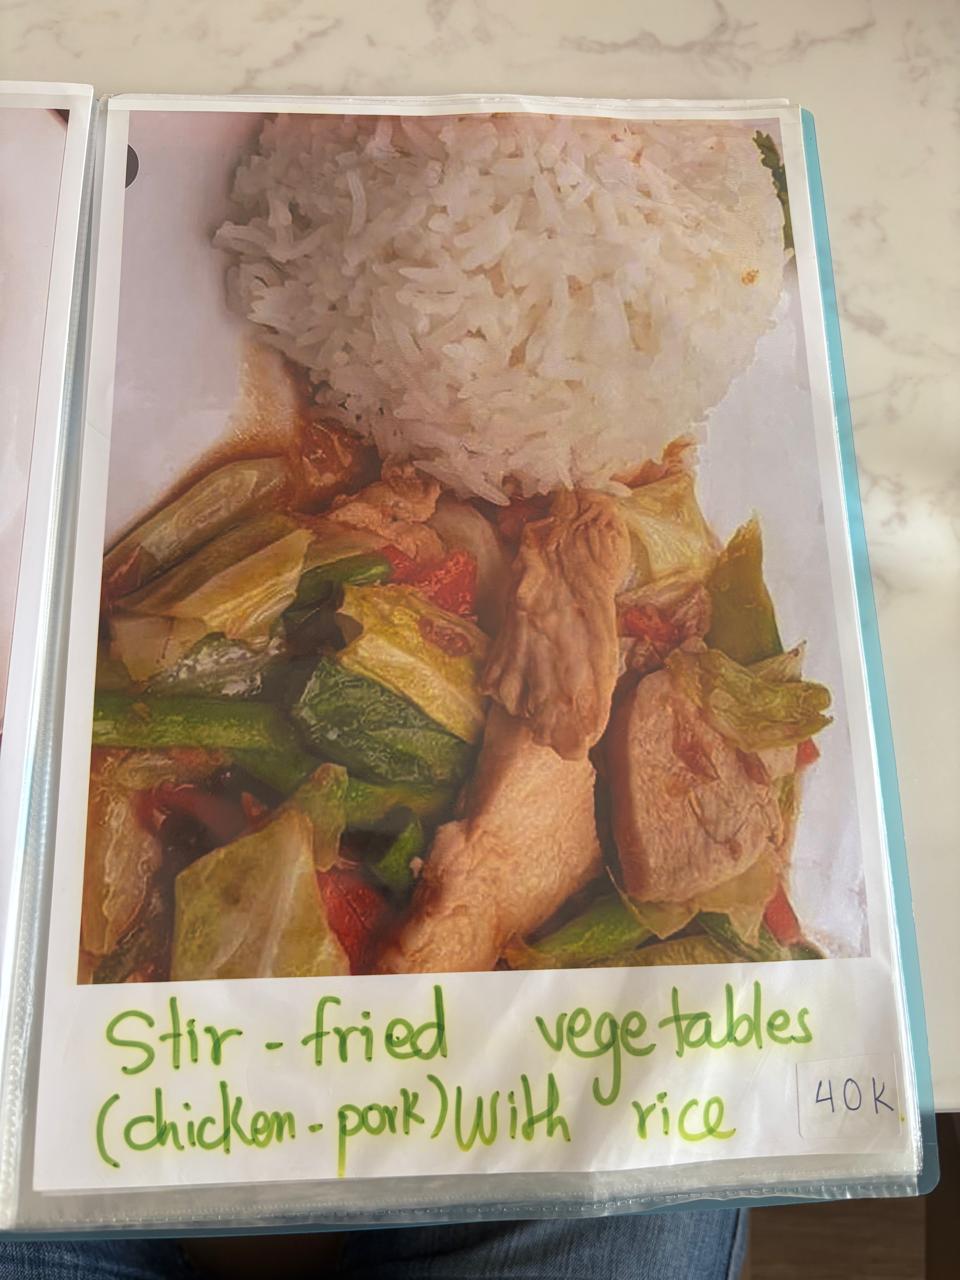 Stir-fried vegetables
(chicken-pork) With rice
40K